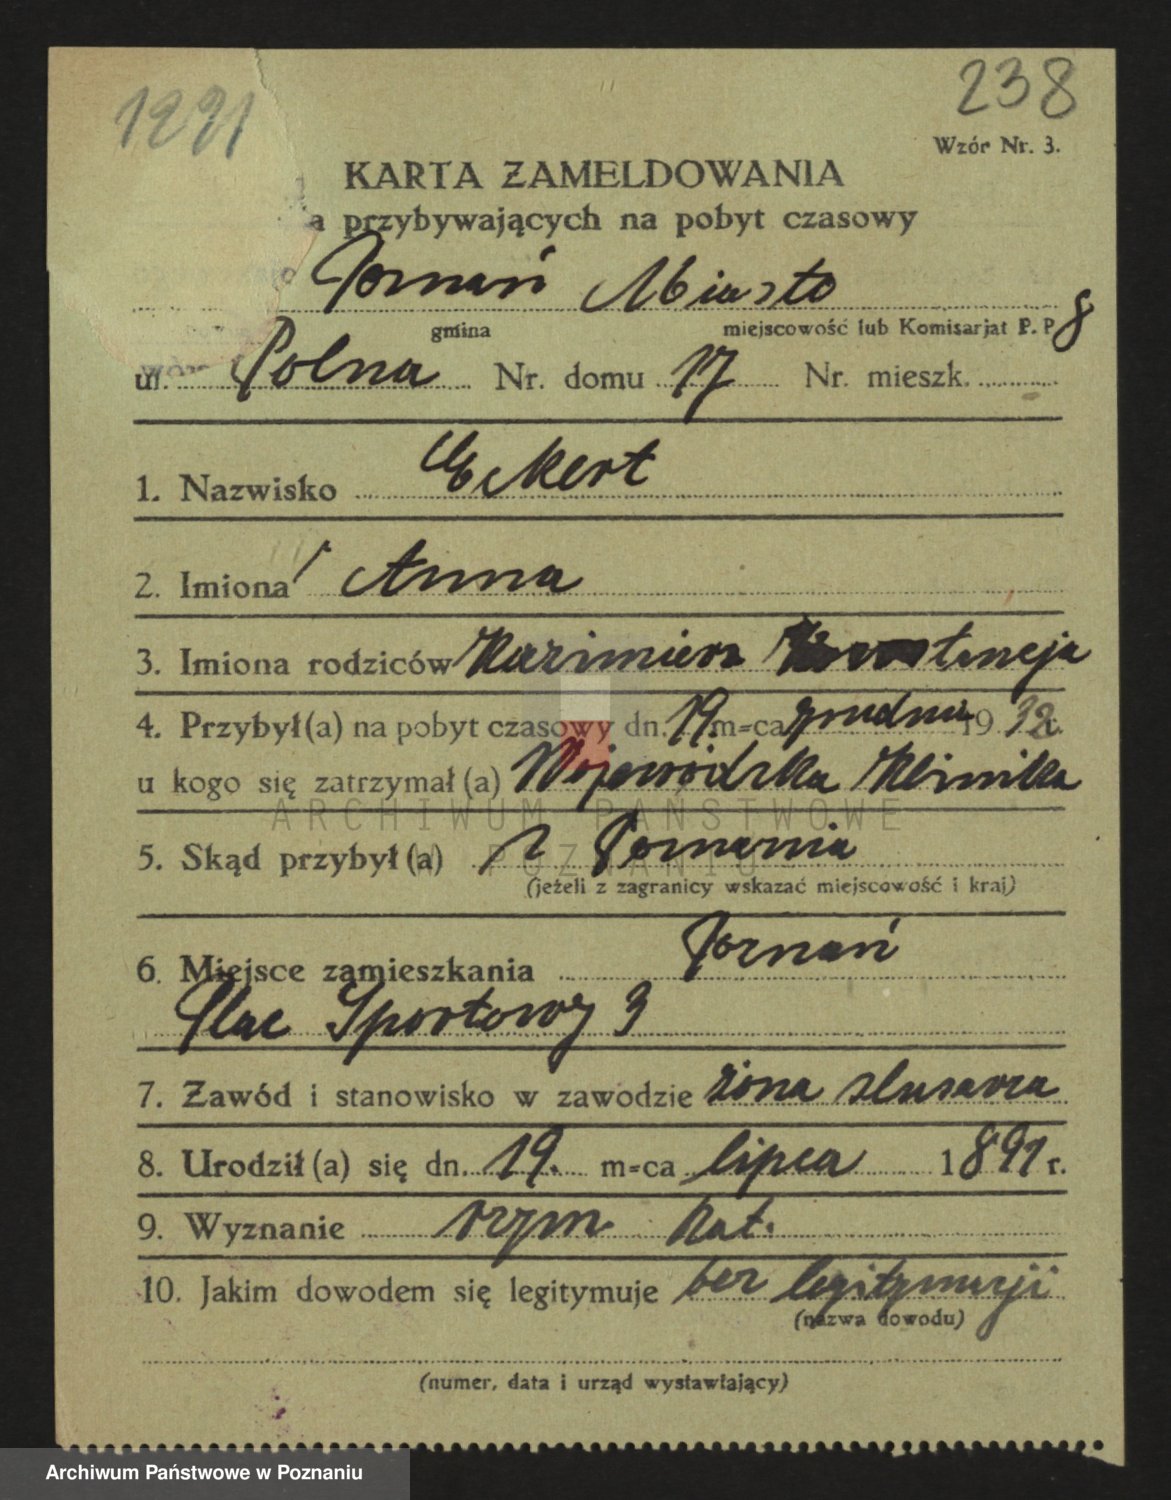 1291
238
Wzór Nr. 3.
KARTA ZAMELDOWANIA
a przybywających na pobyt czasowy
Poznań Miasto
gmina miejscowość lub Komisarjat P. P. 8
ul. Polna Nr. domu 17 Nr. mieszk.
1. Nazwisko Eckert
2. Imiona Anna
3. Imiona rodziców Kazimierz Konstancja
4. Przybył(a) na pobyt czasowy dn. 19. m=ca grudnia 1932 r.
u kogo się zatrzymał(a) Wojewódzka Klinika
ARCHIWUM PAŃSTWOWE
5. Skąd przybył(a) z Poznania
W POZNANIU
(jeżeli z zagranicy wskazać miejscowość i kraj)
6. Miejsce zamieszkania Poznań
Plac Sportowy 3
7. Zawód i stanowisko w zawodzie żona slusarza
8. Urodził(a) się dn. 19. m=ca lipca 1891 r.
9. Wyznanie rzym. kat.
10. Jakim dowodem się legitymuje bez legitymacji
(nazwa dowodu)
(numer, data i urząd wystawiający)
Archiwum Państwowe w Poznaniu